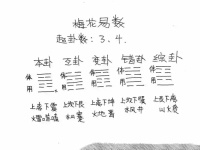 梅花易数
起卦数：3、4.
本卦 互卦 变卦 错卦 综卦
体 体 体 体 体
用 用 用 用 用
上离下震 上坎下艮 上离下坤 上坎下巽 上艮下离
火雷噬嗑 火地晋 水风井 山火贲